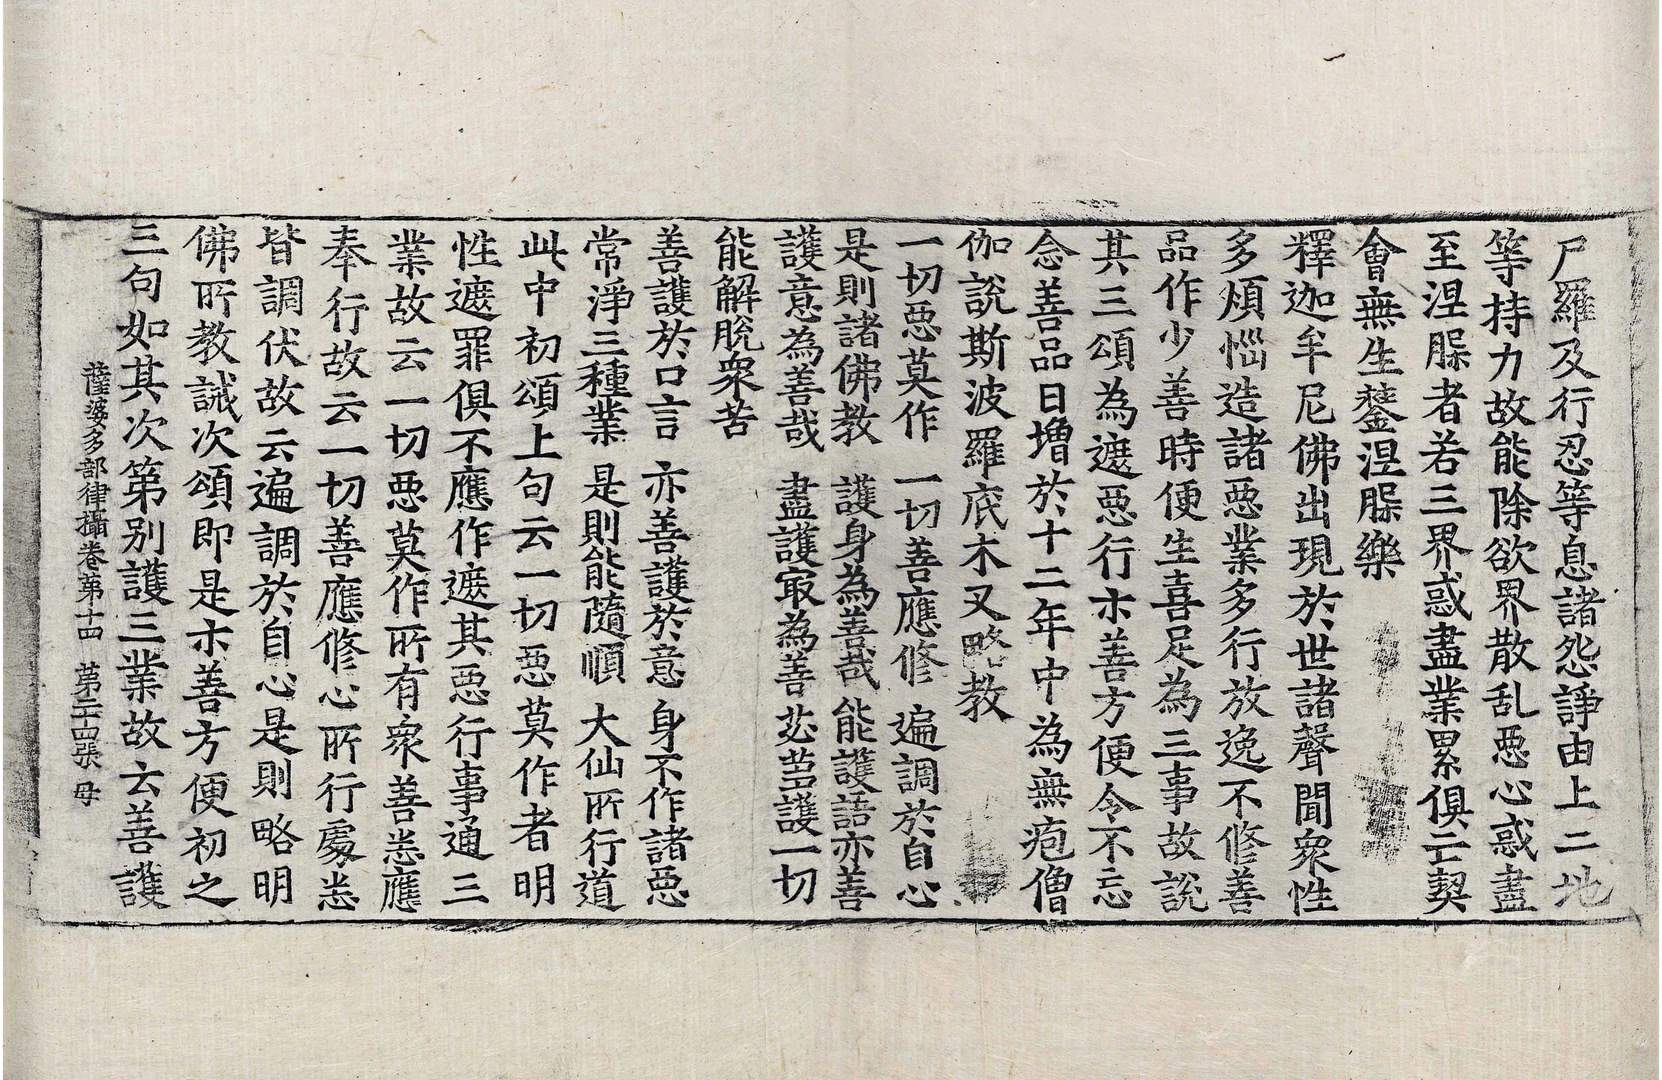 尸羅及行忍等息諸怨諍由上二地
等持力故能除欲界散乱惡心惑盡
至涅脲者若三界惑盡業累俱亡契
會無生鏧涅脲樂
釋迦牟尼佛出現於世諸聲聞衆性
多煩惱造諸惡業多行放逸不修善
品作少善時便生喜足為三事故說
其三頌為遮惡行朩善方便令不忘
念善品日增於十二年中為無疱僧
伽說斯波羅底木叉略教
一切惡莫作　一切善應修　遍調於自心
是則諸佛教　護身為善哉　能護語亦善
護意為善哉　盡護㝡為善　苾芻護一切
能解脫衆苦
善護於口言　亦善護於意　身不作諸惡
常淨三種業　是則能隨順　大仙所行道
此中初頌上句云一切惡莫作者明
性遮罪俱不應作遮其惡行事通三
業故云一切惡莫作所有衆善悉應
奉行故云一切善應修心所行處悉
皆調伏故云遍調於自心是則略明
佛所教誡次頌即是朩善方便初之
三句如其次第別護三業故云善護
薩婆多部律攝卷第十四　第二十四張　母